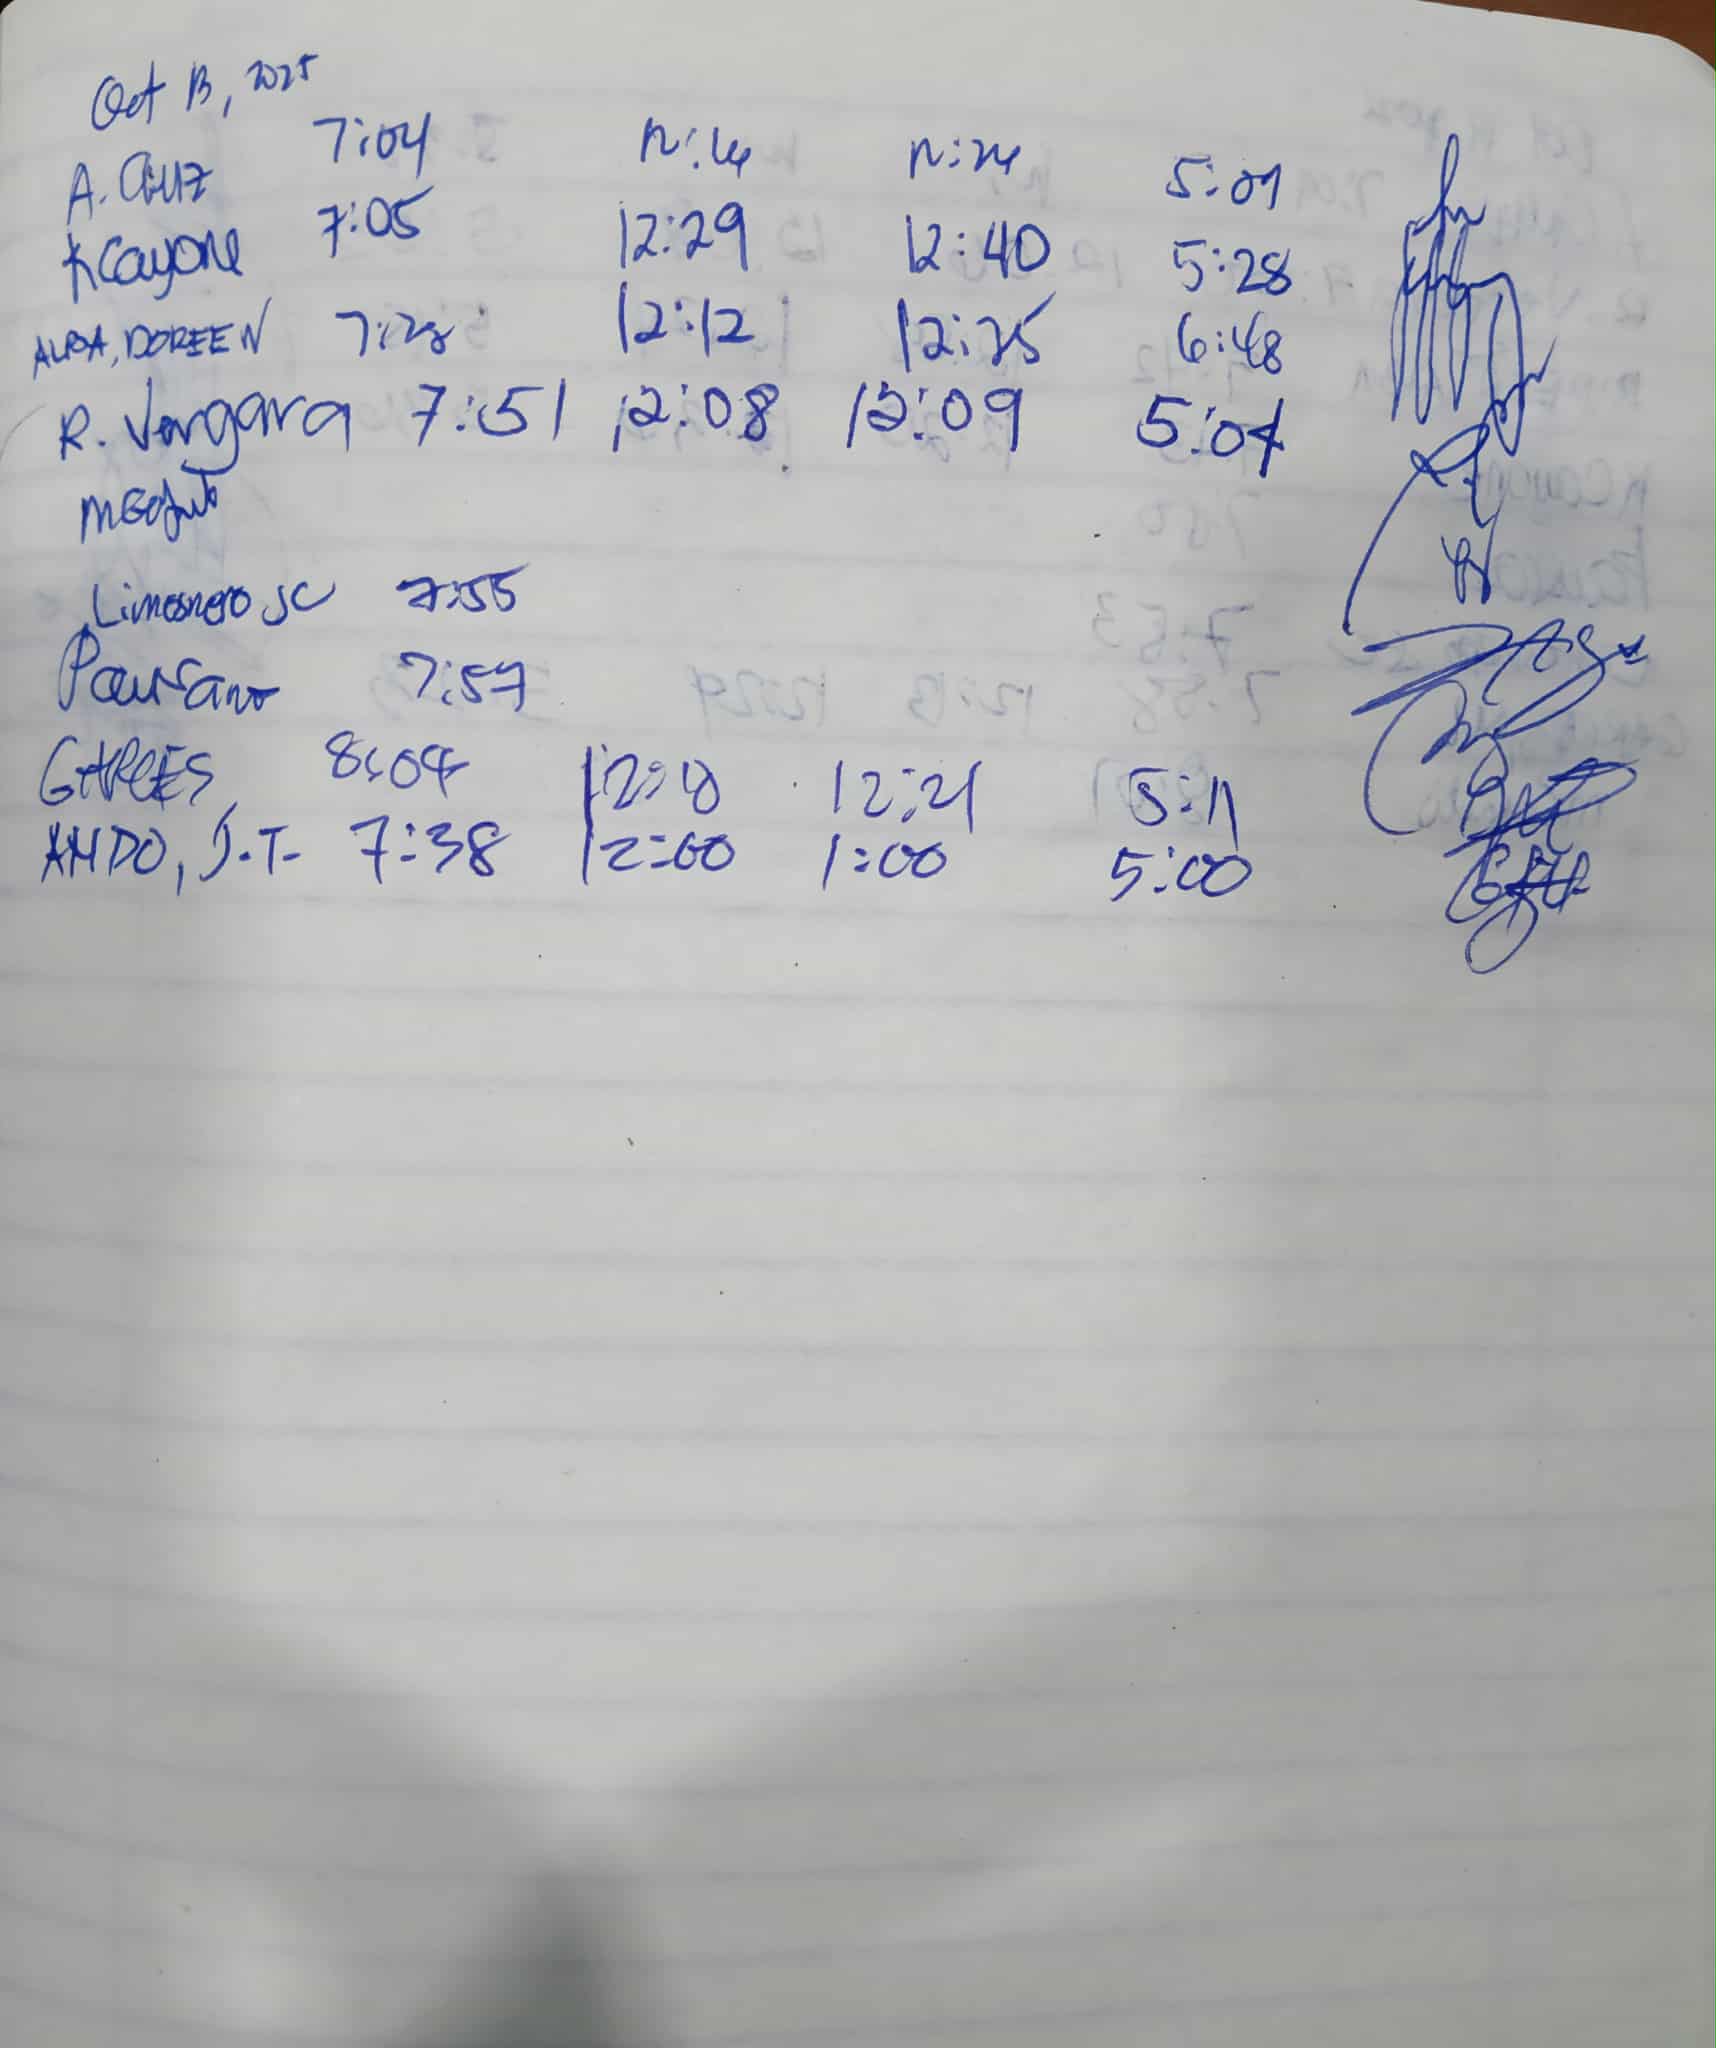 Oct 13, 2025
A. Cruz 7:04 12:14 12:24 5:01
K Cayone 7:05 12:29 12:40 5:28
ALBA, DOREEN 7:28 12:12 12:25 6:48
R. Vergara 7:51 12:08 12:09 5:04
Limosnero JC 7:55
7:57
GARCES 8:04 12:18 12:21 5:11
ANDO, J.T. 7:38 12:00 1:00 5:00